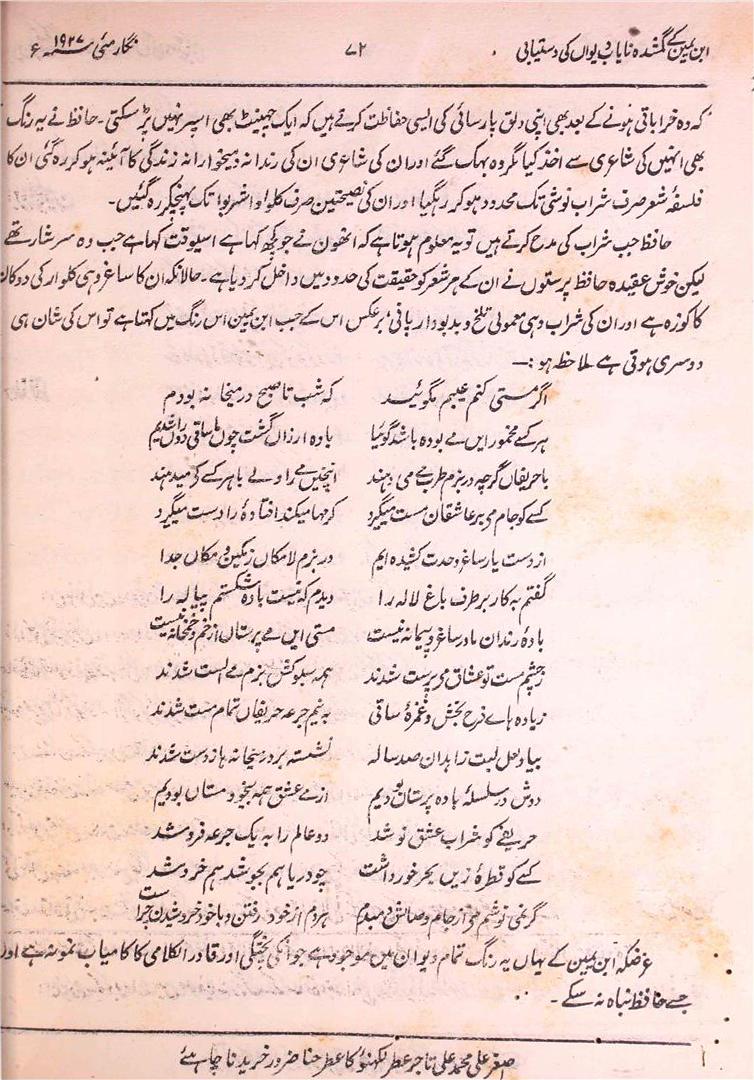 ابن یمین کے گمشدہ نایاب دیوان کی دستیابی ۷۲ نگار مئی ۱۹۲۷ء
کہ وہ خراباتی ہونے کے بعد بھی اپنی دلق پارسائی کی ایسی حفاظت کرتے ہیں کہ ایک چھینٹ بھی اسپر نہیں پڑ سکتی۔ حافظ نے یہ رنگ
بھی انہیں کی شاعری سے اخذ کیا مگر وہ بہک گئے اور ان کی شاعری ان کی رندانہ و میخوارانہ زندگی کا آئینہ ہو کر رہ گئی ان کا
فلسفۂ شعر صرف شراب نوشی تک محدود ہو کر رہگیا اور ان کی نصیحتیں صرف کلوا واشربوا تک پہنچکر رہ گئیں۔
حافظ جب شراب کی مدح کرتے ہیں تو یہ معلوم ہوتا ہے کہ انھوں نے جو کچھ کہا ہے اسیوقت کہا ہے جب وہ سرشار تھے
لیکن خوش عقیدہ حافظ پرستوں نے ان کے ہر شعر کو حقیقت کی حدود میں داخل کر دیا ہے۔ حالانکہ ان کا ساغر وہی کلوار کی دوکان
کا کوزہ ہے اور ان کی شراب وہی معمولی تلخ و بدبودار پانی، برعکس اس کے جب ابن یمین اس رنگ میں کہتا ہے تو اس کی شان ہی
دوسری ہوتی ہے ملاحظہ ہو:—
اگر مستی کنم عیبم مگوئید کہ شب تا صبح در میخانہ بودم
ہر کسے مخمور ایں مے بودہ باشد گوئیا بادہ ارزاں گشت چوں ما ساقی دوراں شدیم
با حریفاں گرچہ در بزم طرب مے می دہند اینچنیں مے را ولے با ہر کسے کے میدہند
کسے کو جام مے بر عاشقان مست میگیرد کرمہا میکند افتادۂ را دست میگیرد
از دست یار ساغر وحدت کشیدہ ایم در بزم لامکاں ز مکین و مکاں جدا
گفتم بہ کار بر طرف باغ لالہ را دیدم کہ نیست بادہ شکستم پیالہ را
بادۂ رندان ما در ساغر و پیمانہ نیست مستی ایں مے پرستاں از خم و خمخانہ نیست
ز چشم مست تو عشاق مے پرست شدند ہمہ سبوکش بزم مے الست شدند
ز بادہ ہائے فرح بخش و غمزۂ ساقی بہ نیم جرعہ حریفاں تمام مست شدند
بیاد لعل لبت زاہدان صد سالہ نشستہ بر در میخانہ ہا ز دست شدند
دوش در سلسلۂ بادہ پرستاں بودیم از مے عشق ہمہ بیخود و مستاں بودیم
حریفے کو شراب عشق نوشد دو عالم را بہ یک جرعہ فروشد
کسے کو قطرۂ زیں بحر خورد است چو دریا ہم بجوشد ہم خروشد
گر نمی نوشم مے از جام وصالش دمبدم ہر دم از خود رفتن و با خود خروشیدن چراست
غرضکہ ابن یمین کے یہاں یہ رنگ تمام دیوان میں موجود ہے جو انکی پختگی اور قادر الکلامی کا کامیاب نمونہ ہے اور
جسے حافظ نباہ نہ سکے۔
اصغر علی محمد علی تاجر عطر لکھنؤ کا عطر حنا ضرور خریدنا چاہئے